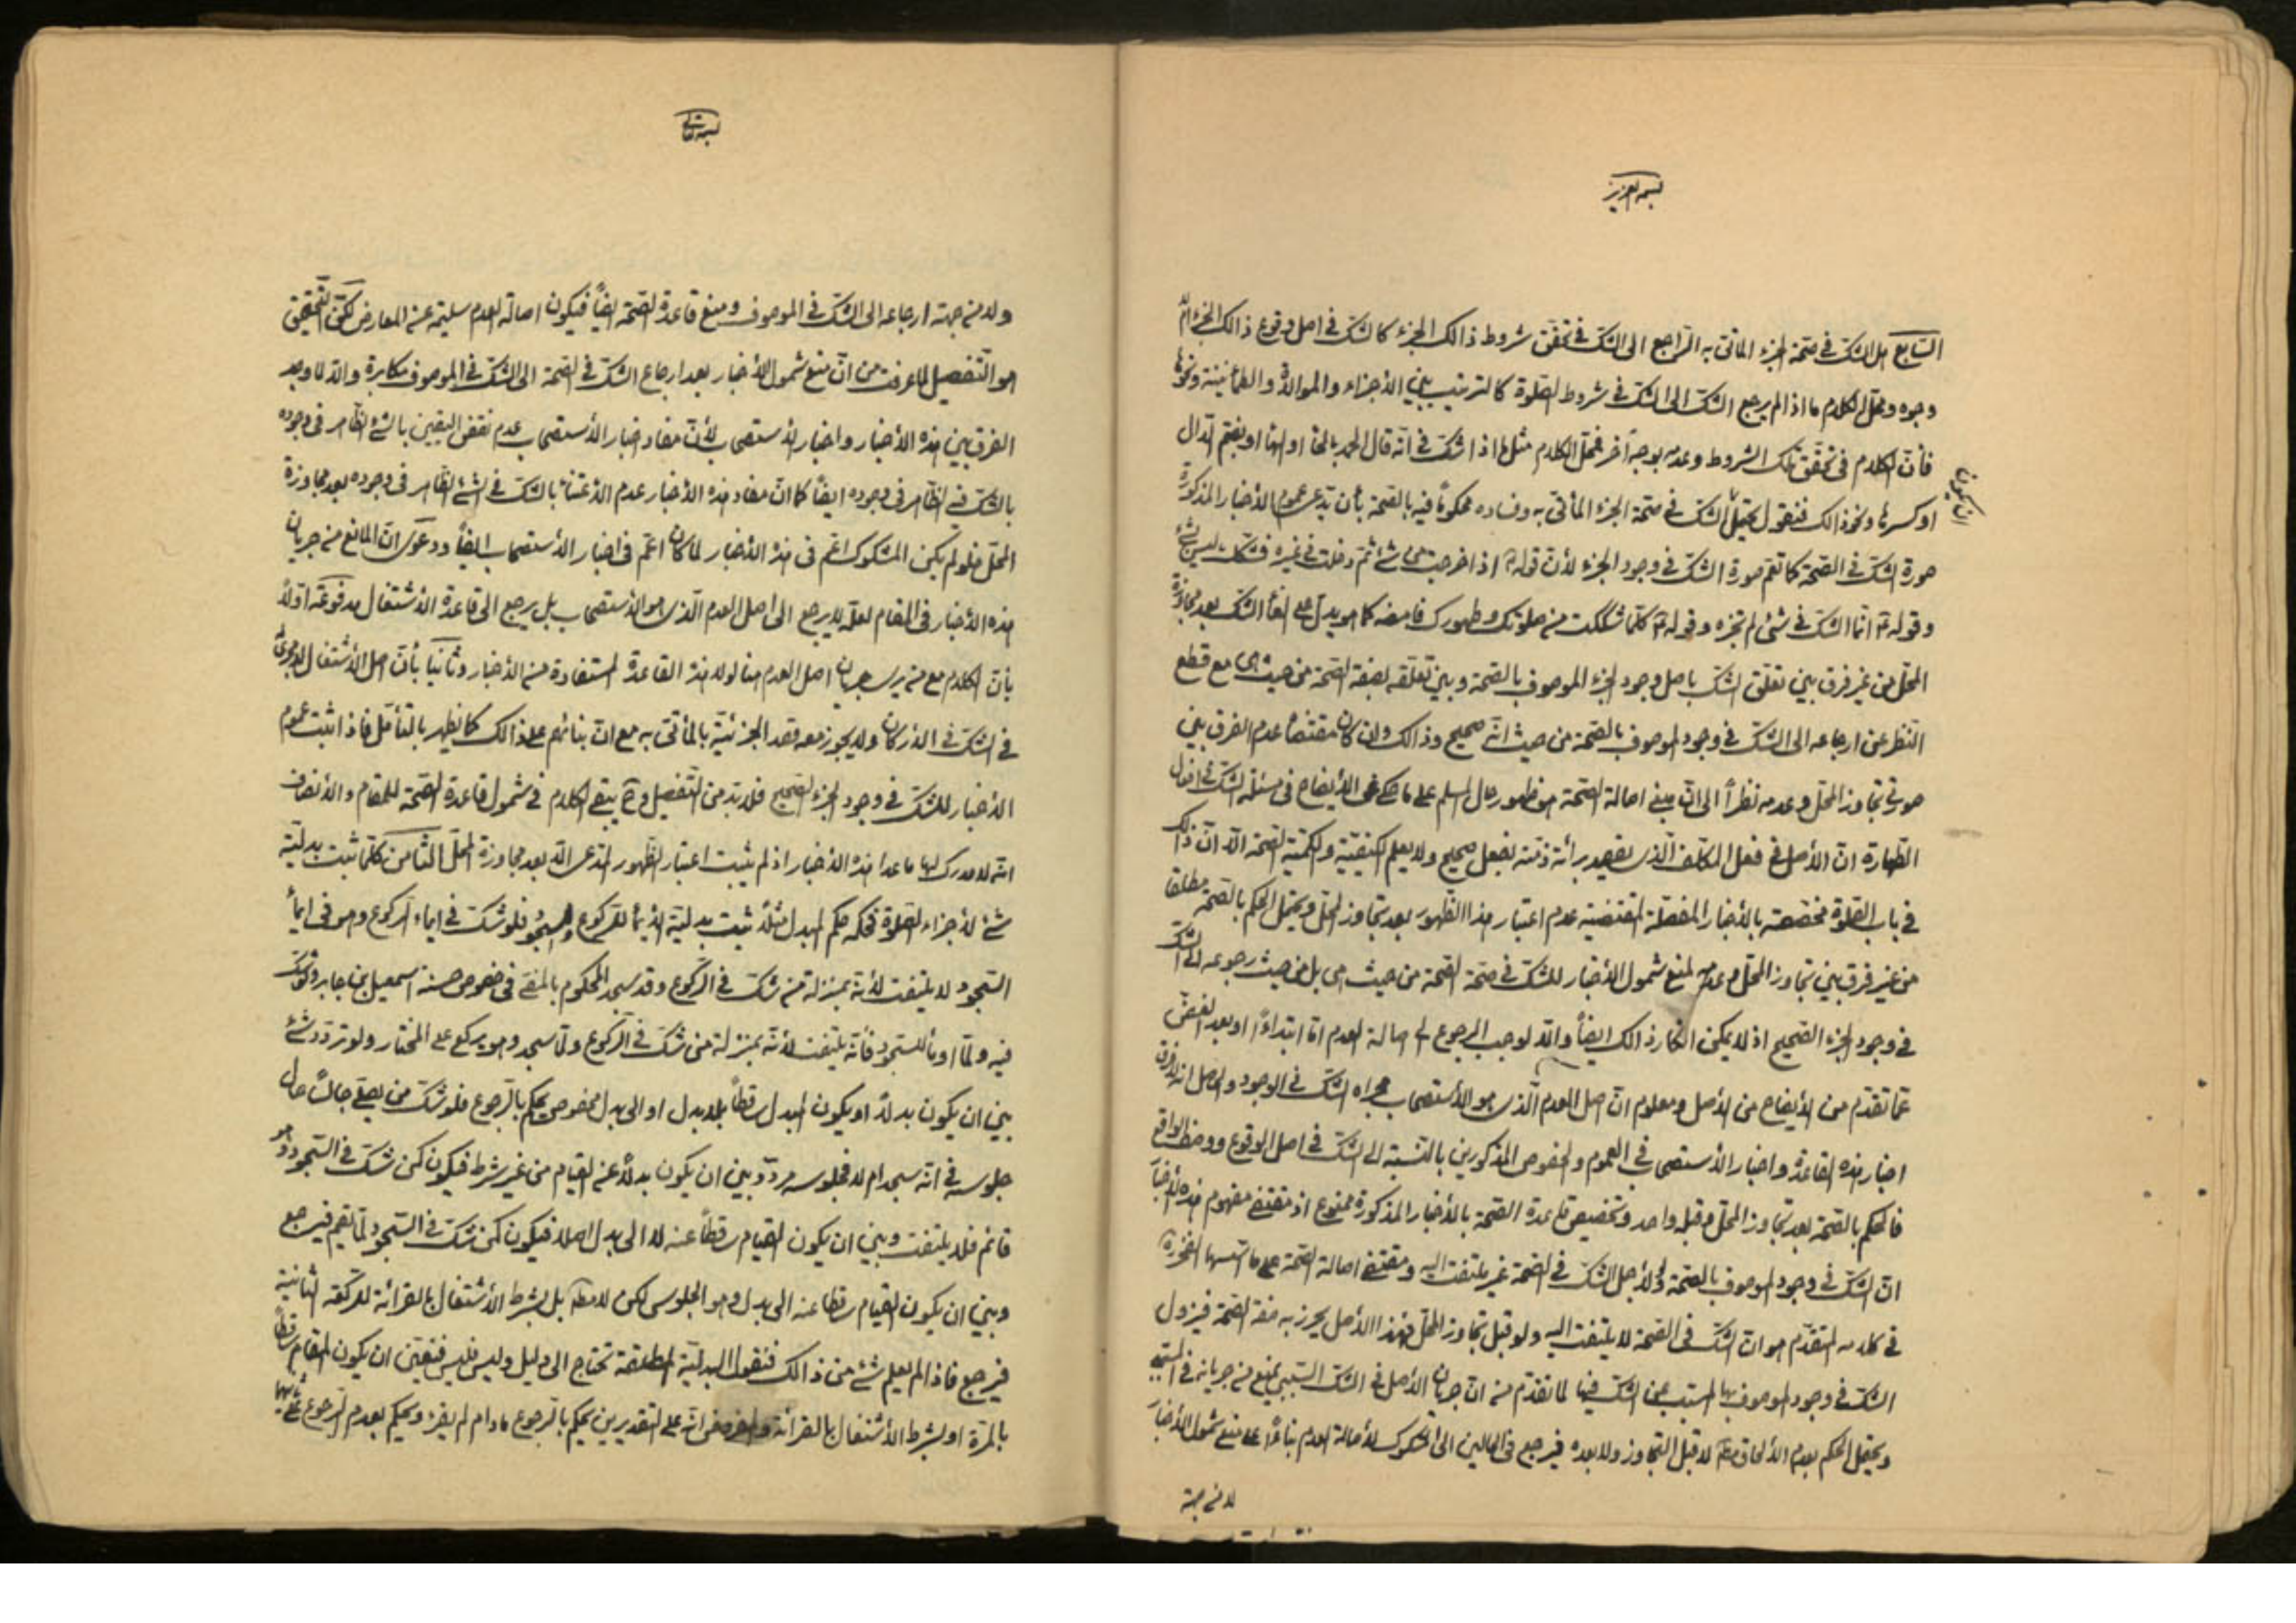 بسمه العزيز
السابع هل الشك في صحة الجزء المأتي به الراجع الى الشك في تحقق شروط ذالك الجزء كالشك في اصل وقوع ذالك الجزء ام لا
وجوه ومحل الكلام ما اذا لم يرجع الشك الى الشك في شروط الصلوة كالترتيب بين الأجزاء والموالاة والطمأنينة ونحوها
فأن الكلام في تحقق تلك الشروط وعدمه بوجه آخر فمحل الكلام مثل ما اذا شك في انه قال الحمد بالحاء او الهاء او بضم الدال
او كسرها ونحو ذالك فنقول يحتمل ان يكون الشك في صحة الجزء المأتي به وفساده محكوماً فيه بالصحة بأن يدعى عموم الأخبار المذكورة
صورة الشك في الصحة كما تعم صورة الشك في وجود الجزء لأن قوله اذا خرجت من شئ ثم دخلت في غيره فشكك ليس بشئ
وقوله انما الشك في شئ لم تجزه وقوله كلما شككت من صلوتك وطهورك فامضه كما هو يدل على الغاء الشك بعد مجاوزة
المحل من غير فرق بين تعلق الشك باصل وجود الجزء الموصوف بالصحة وبين تعلقه بصفة الصحة من حيث هى مع قطع
النظر عن ارجاعه الى الشك في وجود الموصوف بالصحة من حيث انه صحيح وذالك وان كان مقتضاه عدم الفرق بين
صورتي تجاوز المحل وعدمه نظراً الى ان مبنى اصالة الصحة هو ظهور حال المسلم على ما حكى عن الأيضاح في مسئلة الشك في افعال
الطهارة ان الأصل في فعل المكلف الذى يقصد برائة ذمته بفعل صحيح ولا يعلم الكيفية والكمية الصحة الا ان ذالك
في باب الصلوة مخصصة بالأخبار المفصلة المقتضية عدم اعتبار هذا الظهور بعد تجاوز المحل ويحتمل الحكم بالصحة مطلقا
من غير فرق بين تجاوز المحل وعدمه لمنع شمول الأخبار للشك في صحة الصحة من حيث هى بل من حيث رجوعه الى الشك
في وجود الجزء الصحيح اذ لا يمكن انكار ذالك ايضاً والا لوجب الرجوع الى اصالة العدم اما ابتداءً او بعد الغض
عما تقدم من الأيضاح من الأصل ومعلوم ان اصل العدم الذى هو الأستصحاب مجراه الشك في الوجود والحاصل انه لا فرق
اخبار هذه القاعدة واخبار الأستصحاب في العموم والخصوص المذكورين بالنسبة الى الشك في اصل الوقوع ووصف الواقع
فالحكم بالصحة بعد تجاوز المحل وقبله واحد وتخصيص قاعدة الصحة بالأخبار المذكورة ممنوع اذ مقتضى مفهوم هذه الأخبار
ان الشك في وجود الموصوف بالصحة لا لأجل الشك في الصحة غير ملتفت اليه ومقتضى اصالة الصحة على ما اسسها الفخر
في كلامه المتقدم هو ان الشك في الصحة لا يلتفت اليه ولو قبل تجاوز المحل فهذا الأصل يحرز به صفة الصحة فيزول
الشك في وجود الموصوف بها المسبب عن الشك فيها لما تقدم من ان جريان الأصل في الشك السببى يمنع من جريانه في المسبب
ويحتمل الحكم بعدم الألحاق مطلقا لا قبل التجاوز ولا بعده فيرجع في الحالين الى المشكوك لأصالة العدم بناءً على منع شمول الأخبار
لا من جهة
بسمه تعالى
ولا من جهة ارجاعه الى الشك في الموصوف ومنع قاعدة الصحة ايضاً فيكون اصالة العدم سليمة عن المعارض لكن التحقيق
هو التفصيل لما عرفت من ان منع شمول الأخبار بعد ارجاع الشك في الصحة الى الشك في الموصوف مكابرة والا لما وجد
الفرق بين هذه الأخبار واخبار الأستصحاب لأن مفاد اخبار الأستصحاب عدم نقض اليقين بالشئ الظاهر في وجوده
بالشك فيه الظاهر في وجوده ايضاً كما ان مفاد هذه الأخبار عدم الأعتناء بالشك في الشئ الظاهر في وجوده بعد مجاوزة
المحل فلو لم يكن المشكوك اعم في هذه الأخبار لما كان اعم في اخبار الأستصحاب ايضاً ودعوى ان المانع من جريان
هذه الأخبار في المقام لعله لا يرجع الى اصل العدم الذى هو الأستصحاب بل يرجع الى قاعدة الأشتغال مدفوعة اولاً
بأن الكلام مع من يرى جريان اصل العدم هنا لولا هذه القاعدة المستفادة من الأخبار وثانياً بأن اصل الأشتغال لا مجرى له
في الشك في الأركان ولا يجوز معه قصد الجزئية بالمأتي به مع ان بنائهم على ذالك كما يظهر بالتأمل فاذا ثبت عموم
الأخبار للشك في وجود الجزء الصحيح فلا بد من التفصيل وح يبقى الكلام في شمول قاعدة الصحة للمقام والأنصاف
انه لا مدرك لها ما عدا هذه الأخبار اذ لم يثبت اعتبار الظهور المدعى الا بعد مجاوزة المحل الثامن كلما ثبت بدلية
شئ لأجزاء الصلوة فحكمه حكم المبدل مثلاً ثبت بدلية الأيماء للركوع والسجود فلو شك في ايماء الركوع وهو في ايماء
السجود لا يلتفت لأنه بمنزلة من شك في الركوع وقد سجد المحكوم بالمضى في خصوص حسنة اسمعيل بن جابر ولو شك
فيه ولما اومأ للسجود فأنه يلتفت لأنه بمنزلة من شك في الركوع ولما سجد وهو يركع على المختار ولو تردد شئ
بين ان يكون بدلاً او يكون المبدل ساقطاً بلا بدل او الى بدل مخصوص يحكم بالرجوع فلو شك من يصلى جالساً حال
جلوسه في انه سجد ام لا فجلوسه مردد بين ان يكون بدلاً عن القيام من غير شرط فيكون كمن شك في السجود وهو
قائم فلا يلتفت وبين ان يكون القيام ساقطاً عنه لا الى بدل اصلا فيكون كمن شك في السجود لما يقم فيرجع
وبين ان يكون القيام ساقطا عنه الى بدل وهو الجلوس لكن لا مطلقا بل بشرط الأشتغال بالقرائة للركعة الثانية
فيرجع فاذا لم يعلم شئ من ذالك فنقول البدلية المطلقة تحتاج الى دليل وليس فليس فتعين ان يكون القيام ساقطاً
بالمرة او بشرط الأشتغال بالقرائة والمفروض انه على التقديرين يحكم بالرجوع ما دام لم يقرء ويحكم بعدم الرجوع على ثانيهما